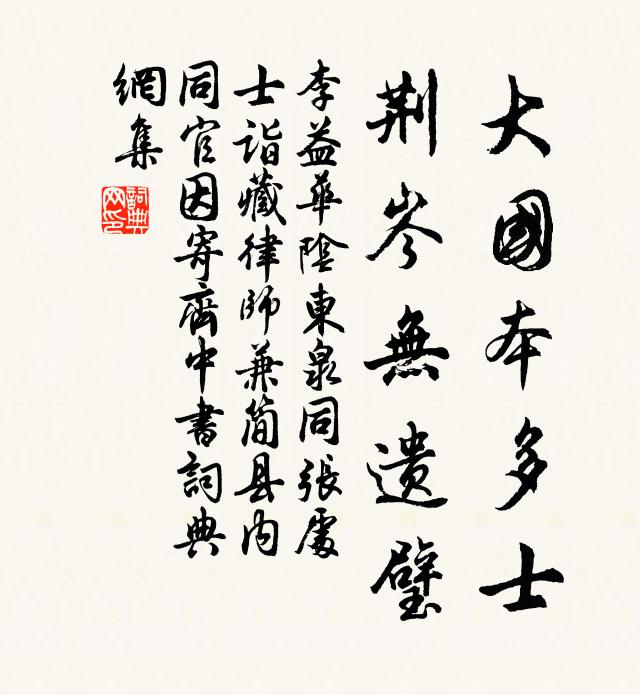 大國本多士
荆岑無遺璧
李益華陰東泉同張處
士詣藏律師兼简县内
同官因寄齊中書詞典
網集
詞典
网印